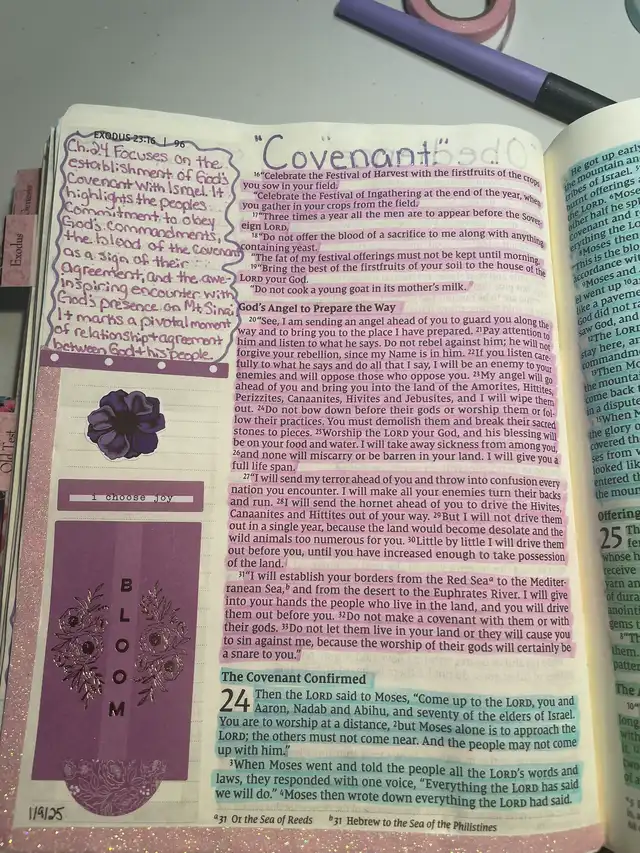 EXODUS 23:16 | 96
Ch. 24 Focuses on the
establishment of God's
Covenant with Israel. It
highlights the peoples
Commitment to obey
God's commandments,
the blood of the covenant
as a sign of their
agreement, and the awe-
inspiring encounter with
God's presence on Mt Sinai
It marks a pivotal moment
of relationship agreement
between God + his people.
i choose joy
BLOOM
1/9/25
"Covenant"
16"Celebrate the Festival of Harvest with the firstfruits of the crops
you sow in your field.
"Celebrate the Festival of Ingathering at the end of the year, when
you gather in your crops from the field.
17"Three times a year all the men are to appear before the Sover-
eign LORD.
18"Do not offer the blood of a sacrifice to me along with anything
containing yeast.
"The fat of my festival offerings must not be kept until morning.
19"Bring the best of the firstfruits of your soil to the house of the
LORD your God.
"Do not cook a young goat in its mother's milk.
God's Angel to Prepare the Way
20"See, I am sending an angel ahead of you to guard you along the
way and to bring you to the place I have prepared. 21Pay attention to
him and listen to what he says. Do not rebel against him; he will not
forgive your rebellion, since my Name is in him. 22If you listen care-
fully to what he says and do all that I say, I will be an enemy to your
enemies and will oppose those who oppose you. 23My angel will go
ahead of you and bring you into the land of the Amorites, Hittites,
Perizzites, Canaanites, Hivites and Jebusites, and I will wipe them
out. 24Do not bow down before their gods or worship them or fol-
low their practices. You must demolish them and break their sacred
stones to pieces. 25Worship the LORD your God, and his blessing will
be on your food and water. I will take away sickness from among you,
26and none will miscarry or be barren in your land. I will give you a
full life span.
27"I will send my terror ahead of you and throw into confusion every
nation you encounter. I will make all your enemies turn their backs
and run. 28I will send the hornet ahead of you to drive the Hivites,
Canaanites and Hittites out of your way. 29But I will not drive them
out in a single year, because the land would become desolate and the
wild animals too numerous for you. 30Little by little I will drive them
out before you, until you have increased enough to take possession
of the land.
31"I will establish your borders from the Red Sea a to the Mediter-
ranean Sea, b and from the desert to the Euphrates River. I will give
into your hands the people who live in the land, and you will drive
them out before you. 32Do not make a covenant with them or with
their gods. 33Do not let them live in your land or they will cause you
to sin against me, because the worship of their gods will certainly be
a snare to you."
The Covenant Confirmed
24 Then the LORD said to Moses, "Come up to the LORD, you and
Aaron, Nadab and Abihu, and seventy of the elders of Israel.
You are to worship at a distance, 2but Moses alone is to approach the
LORD; the others must not come near. And the people may not come
up with him."
3When Moses went and told the people all the LORD's words and
laws, they responded with one voice, "Everything the LORD has said
we will do." 4Moses then wrote down everything the LORD had said.
a 31 Or the Sea of Reeds b 31 Hebrew to the Sea of the Philistines
Exodus
Old Test
He got up early